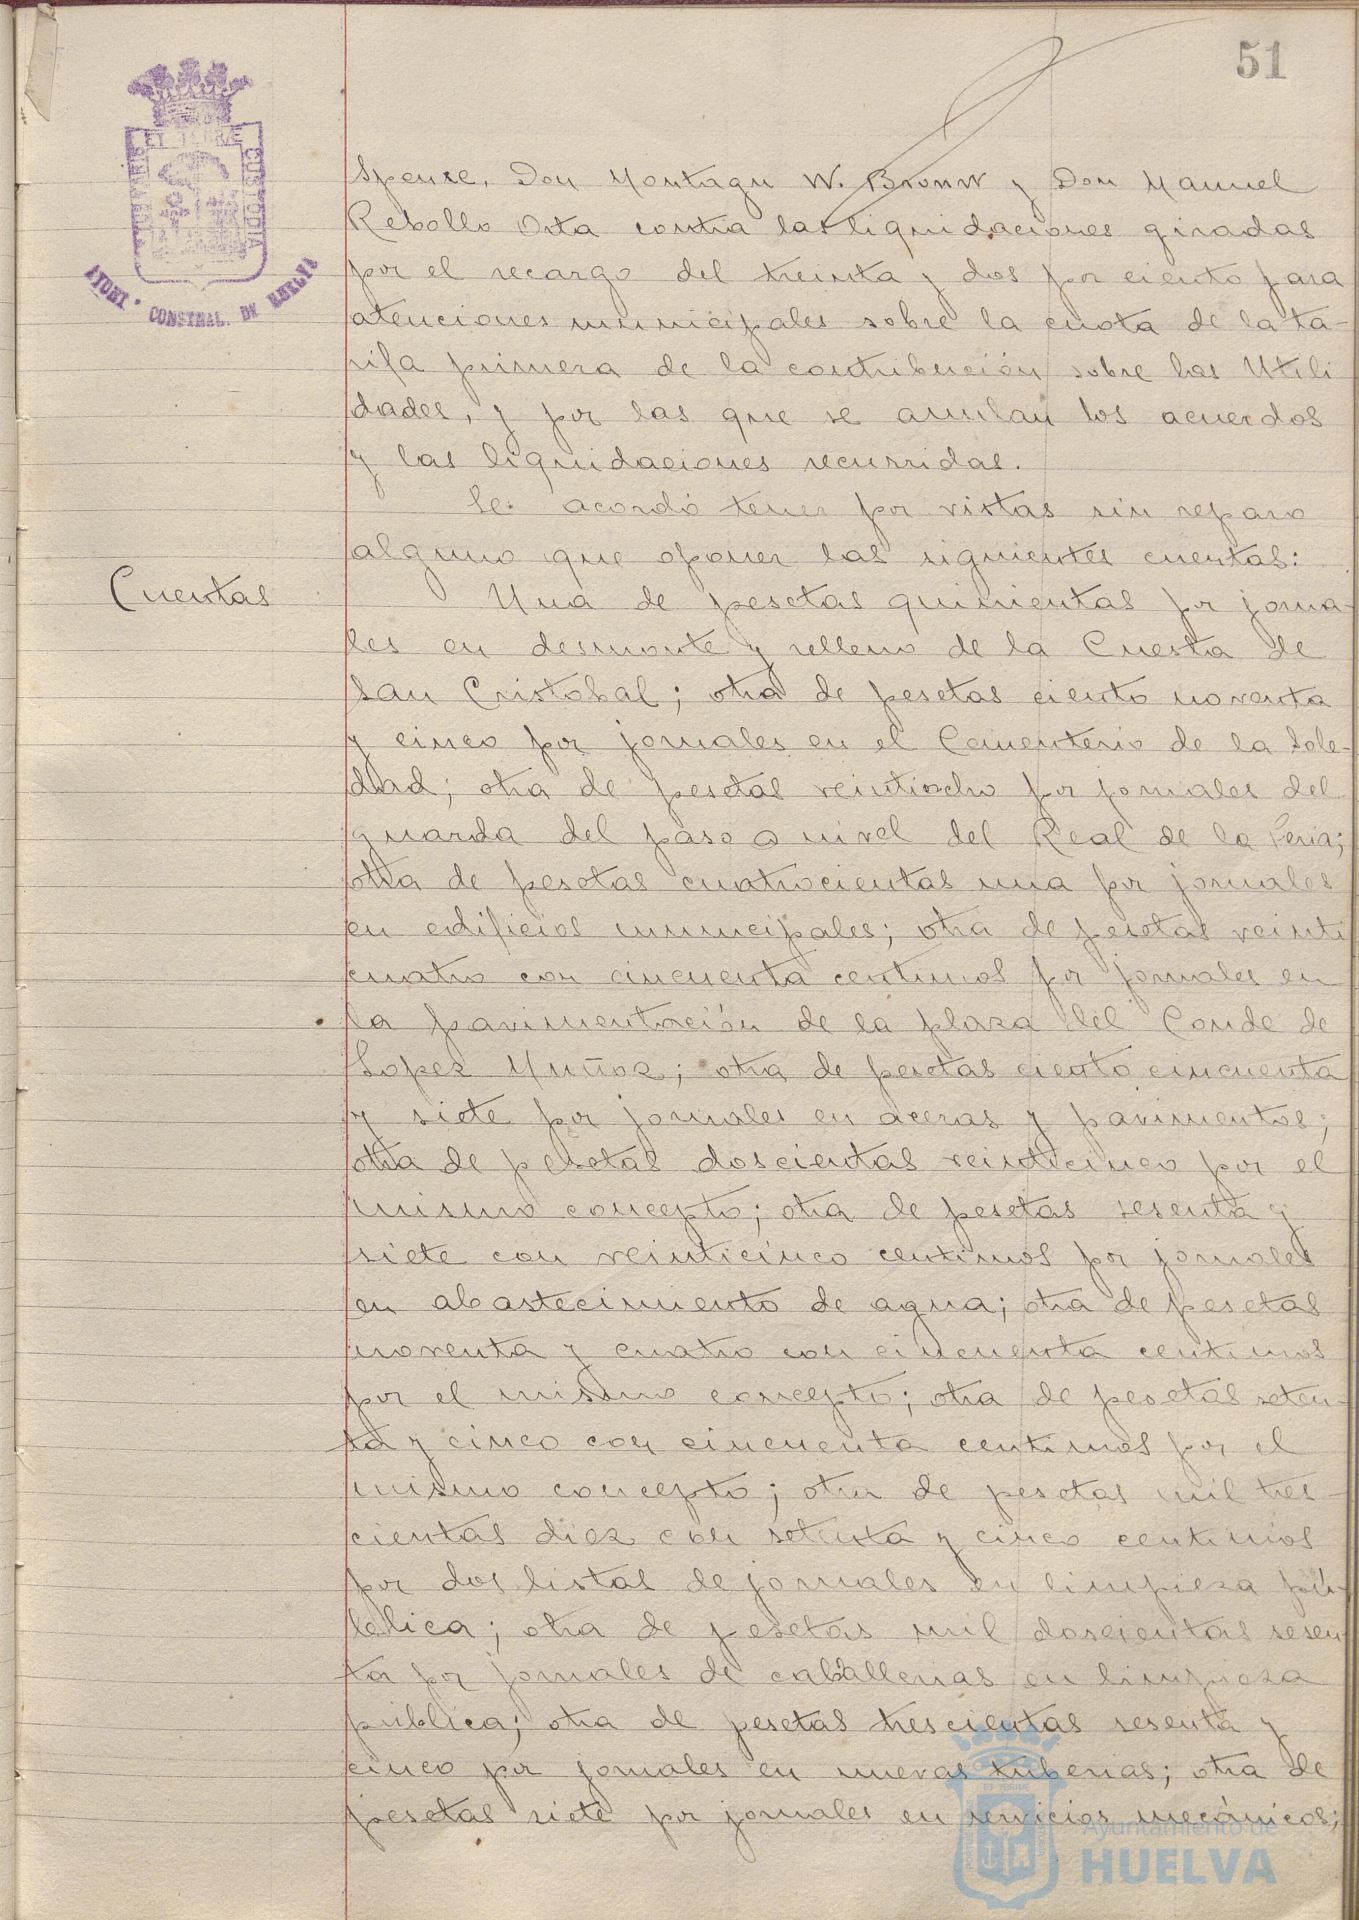 51
PORTUS MARIS ET TERRÆ CUSTODIA
AYUNT. CONSTNAL. DE HUELVA
Spence, Don Montagu W. Brown y Don Manuel
Rebollo Orta contra las liquidaciones giradas
por el recargo del treinta y dos por ciento para
atenciones municipales sobre la cuota de la ta-
rifa primera de la contribución sobre las Utili
dades, y por las que se anulan los acuerdos
y las liquidaciones recurridas.
Se acordó tener por vistas sin reparo
alguno que oponer las siguientes cuentas:
Cuentas
Una de pesetas quinientas por jorna-
les en desmonte y relleno de la Cuesta de
San Cristobal; otra de pesetas ciento noventa
y cinco por jornales en el Cementerio de la Sole-
dad; otra de pesetas veintiocho por jornales del
guarda del paso a nivel del Real de la Feria;
otra de pesetas cuatrocientas una por jornales
en edificios municipales; otra de pesetas veinti
cuatro con cincuenta centimos por jornales en
la pavimentación de la plaza del Conde de
Lopez Muñoz; otra de pesetas ciento cincuenta
y siete por jornales en aceras y pavimentos;
otra de pesetas doscientas veinticinco por el
mismo concepto; otra de pesetas sesenta y
siete con veinticinco centimos por jornales
en abastecimiento de agua; otra de pesetas
noventa y cuatro con cincuenta centimos
por el mismo concepto; otra de pesetas seten-
ta y cinco con cincuenta centimos por el
mismo concepto; otra de pesetas mil tres-
cientas diez con setenta y cinco centimos
por dos listas de jornales en limpieza pú-
blica; otra de pesetas mil doscientas sesen-
ta por jornales de caballerias en limpieza
publica; otra de pesetas trescientas sesenta y
cinco por jornales en nuevas tuberias; otra de
pesetas siete por jornales en servicios mecánicos;
Ayuntamiento de
HUELVA